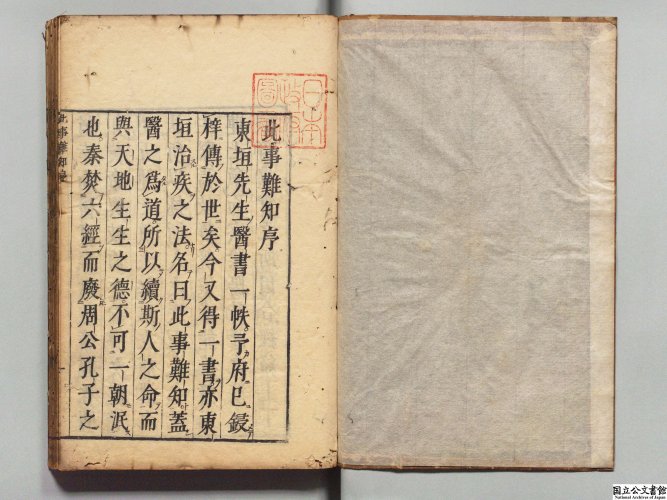 此事難知序
東垣先生醫書一帙予府已鋟
梓傳於世矣今又得一書亦東
垣治疾之法名曰此事難知蓋
醫之爲道所以續斯人之命而
與天地生生之德不可一朝泯
也秦焚六經而廢周公孔子之
此事難知序
日本
政府
圖書
国立公文書館
National Archives of Japan